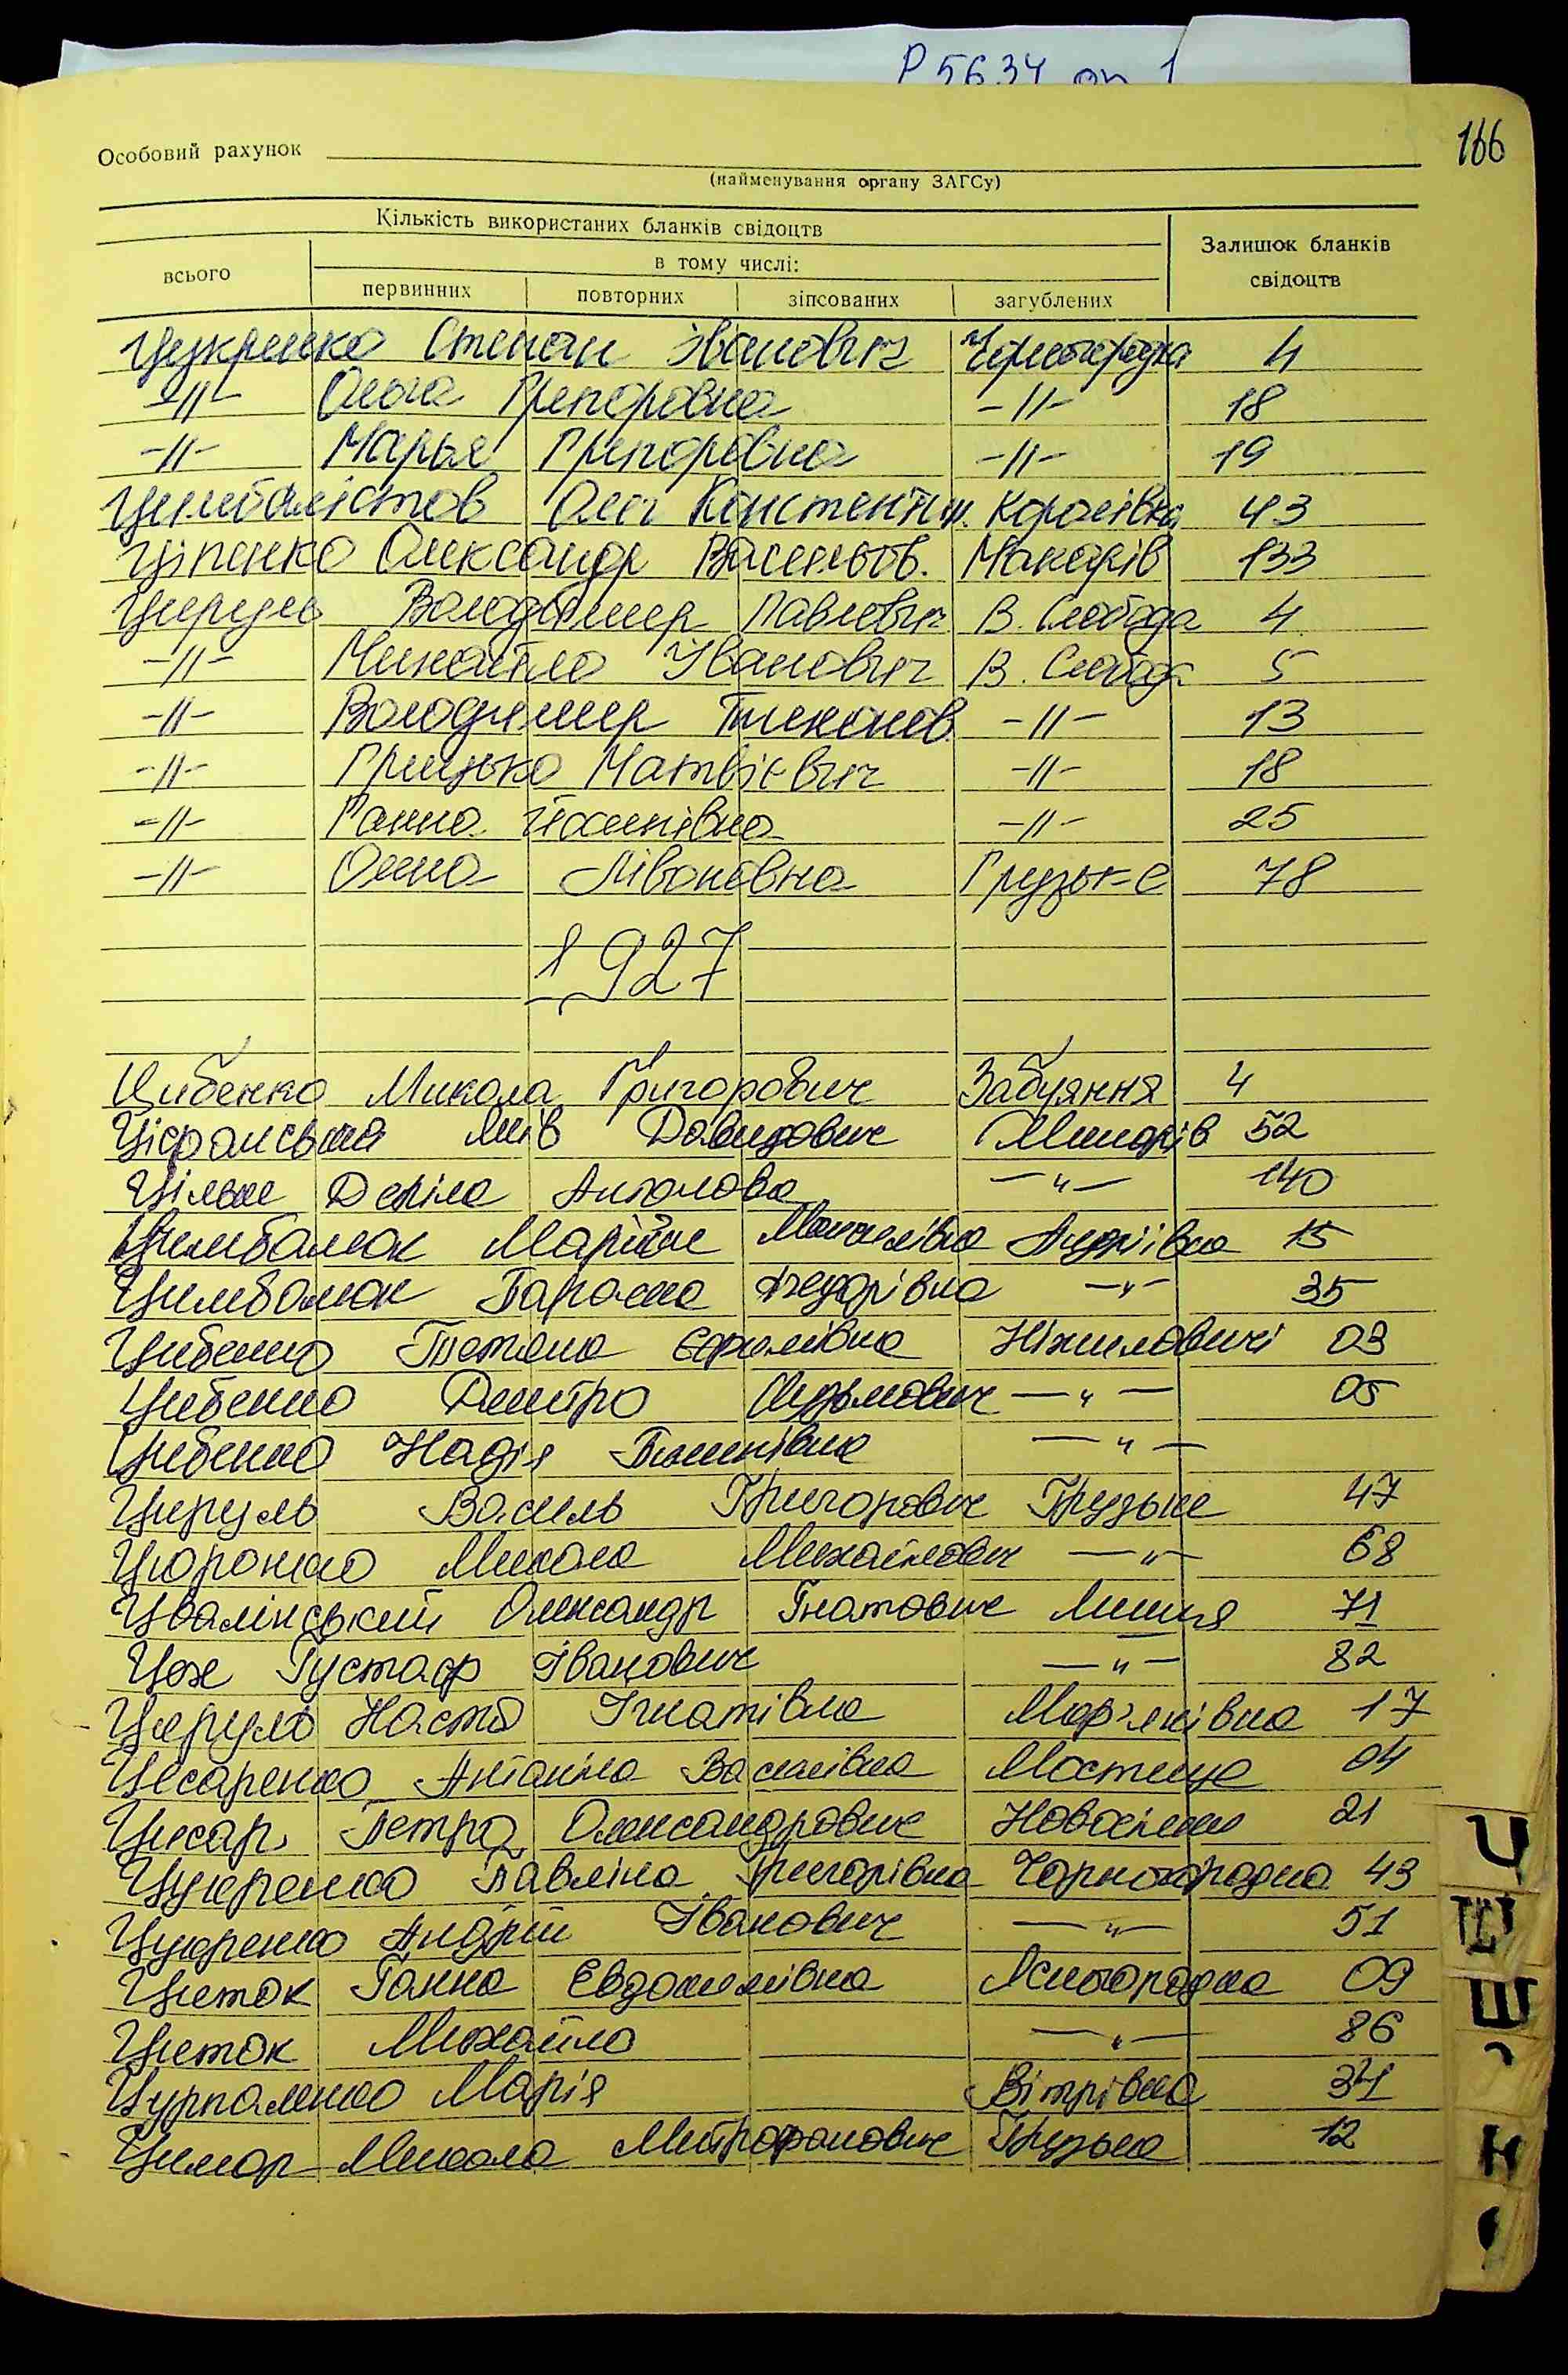 Р 5634 оп 1
166
Особовий рахунок
(найменування органу ЗАГСу)
Кількість використаних бланків свідоцтв
Залишок бланків свідоцтв
всього
в тому числі:
первинних повторних зіпсованих загублених
Цукренко Степан Іванович Чорногородка 4
-//- Ольга Григоровна -//- 18
-//- Марья Григоровна -//- 19
Цимбалістов Олег Констентин. Королівка 43
Ціпенко Олександр Васильов. Макарів 133
Цируль Володимир Павлович В. Слобода 4
-//- Михайло Іванович В. Слобода 5
-//- Володимир Тихонов. -//- 13
-//- Грицько Матвієвич -//- 18
-//- Ганна Йосипівна -//- 25
-//- Олена Грузьке 78
1927
Цибенко Микола Григорович Забуяння 4
Давидович Макарів 52
—"— 140
Цимбалюк Марійка Андріївка 15
Цимбалюк Параска Федорівна —"— 35
Цибенко Тетяна Єфимівна Ніжиловичі 03
Цибенко Дмитро Кузьмович —"— 05
Цибенко Надія —"—
Цируль Василь Григорович Грузьке 47
Микола Михайлович —"— 68
Цвалінський Олександр Гнатович Липня 71
Цох Густаф Іванович —"— 82
Цируль Настя Ігнатівна Мар'янівка 17
Цесаренко Антоніна Василівна Мостище 04
Цисар Петро Олександрович Новосілки 21
Цукренко Павліна Григорівна Чорногородка 43
Цукренко Андрій Іванович —"— 51
Циток Ганна Євдокимівна Ясногородка 09
Циток Михайло —"— 86
Цурпаленко Марія Вітрівка 31
Цимар Микола Митрофанович Грузька 12
Ц
Ш
Щ
Н